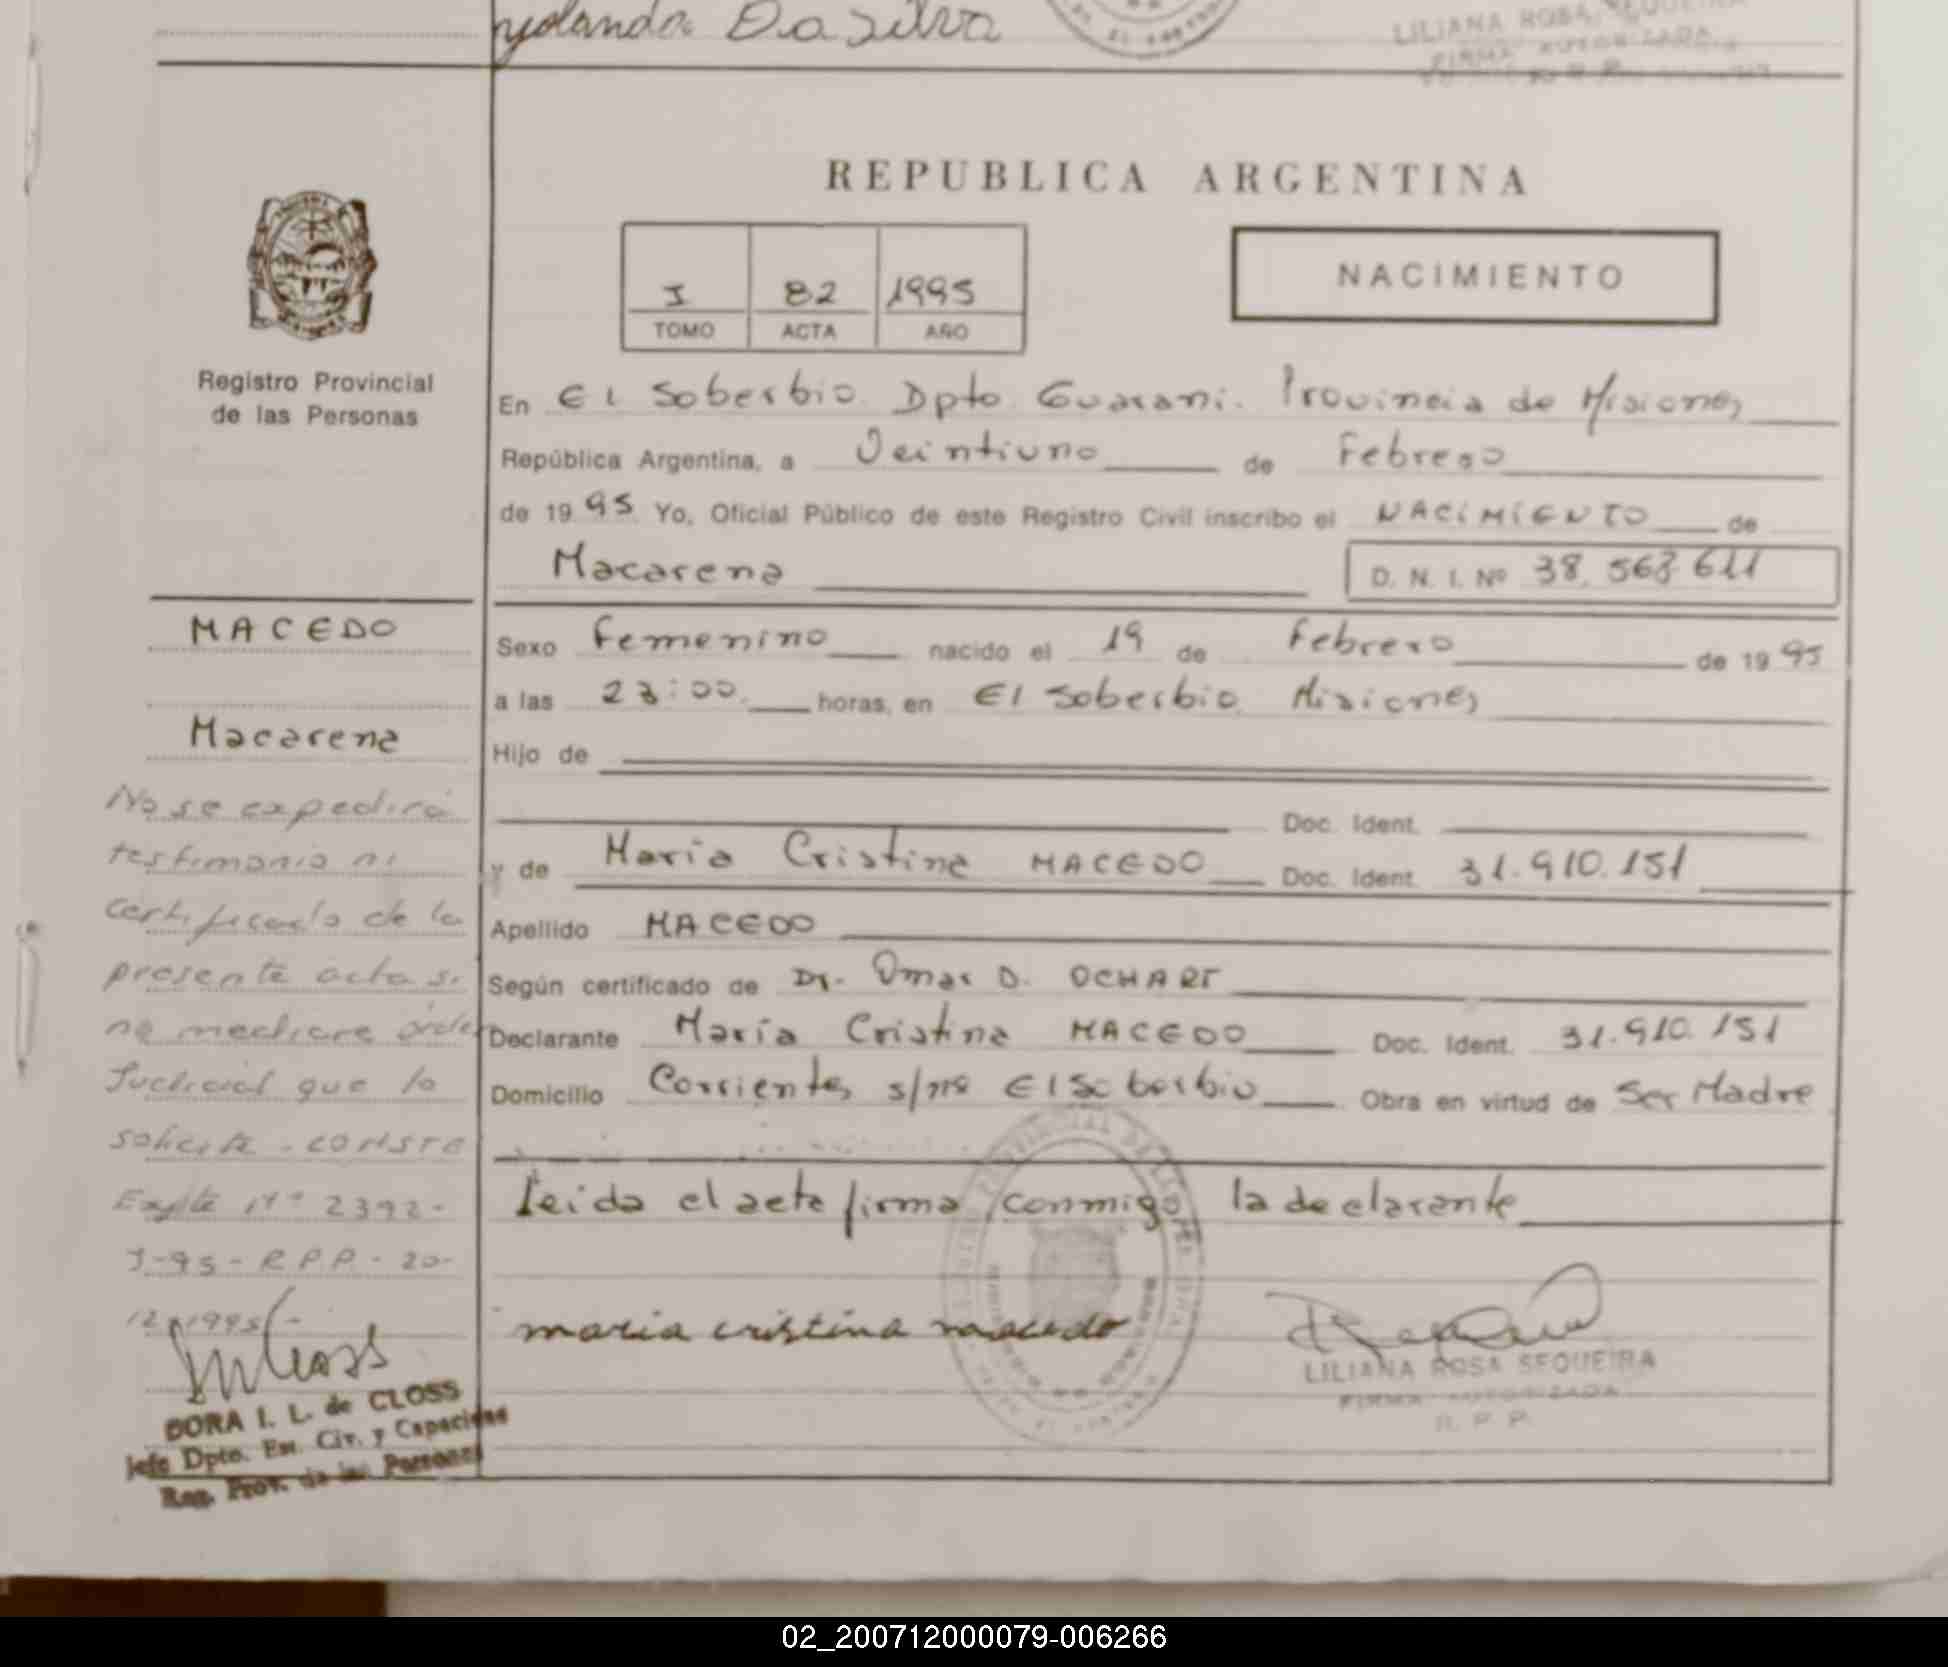 yolanda Da Silva
LILIANA ROSA SEQUEIRA
FIRMA AUTORIZADA
REPUBLICA ARGENTINA
I 82 1995
TOMO ACTA AÑO
NACIMIENTO
Registro Provincial
de las Personas
En El Soberbio. Dpto. Guarani. Provincia de Misiones
República Argentina, a Veintiuno de Febrero
de 1995 Yo, Oficial Público de este Registro Civil inscribo el NACIMIENTO de
Macarena D. N. I. Nº 38.563.611
MACEDO
Macarena
Sexo Femenino nacido el 19 de Febrero de 1995
a las 23:00. horas, en El Soberbio Misiones
Hijo de
Doc. Ident.
y de María Cristina MACEDO Doc. Ident. 31.910.151
Apellido MACEDO
Según certificado de Dr. Omar D. OCHART
Declarante María Cristina MACEDO Doc. Ident. 31.910.151
Domicilio Corrientes s/nº El Soberbio Obra en virtud de Ser Madre
Leida el acta firma conmigo la declarante
maria cristina macedo
LILIANA ROSA SEQUEIRA
FIRMA AUTORIZADA
R. P. P.
No se expedirá
testimonio ni
certificado de la
presente acta si
no mediare orden
Judicial que lo
solicite. CONSTE
Expte Nº 2392-
J-95-RPP-20-
12-1995-
DORA I. L. de CLOSS
Jefe Dpto. Est. Civ. y Capacidad
Reg. Prov. de las Personas
02_200712000079-006266